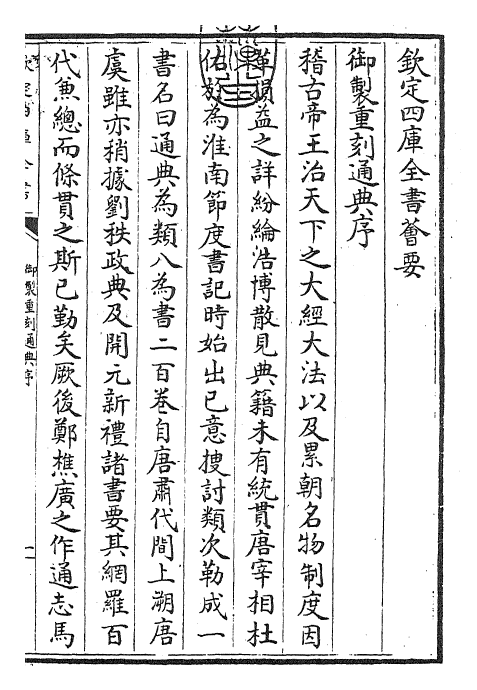 欽定四庫全書薈要
御製重刻通典序
稽古帝王治天下之大經大法以及累朝名物制度因
革損益之詳紛綸浩博散見典籍未有統貫唐宰相杜
佑於為淮南節度書記時始出己意搜討類次勒成一
書名曰通典為類八為書二百卷自唐肅代間上溯唐
虞雖亦稍據劉秩政典及開元新禮諸書要其網羅百
代兼總而條貫之斯已勤矣厥後鄭樵廣之作通志馬
御製重刻通典序
一